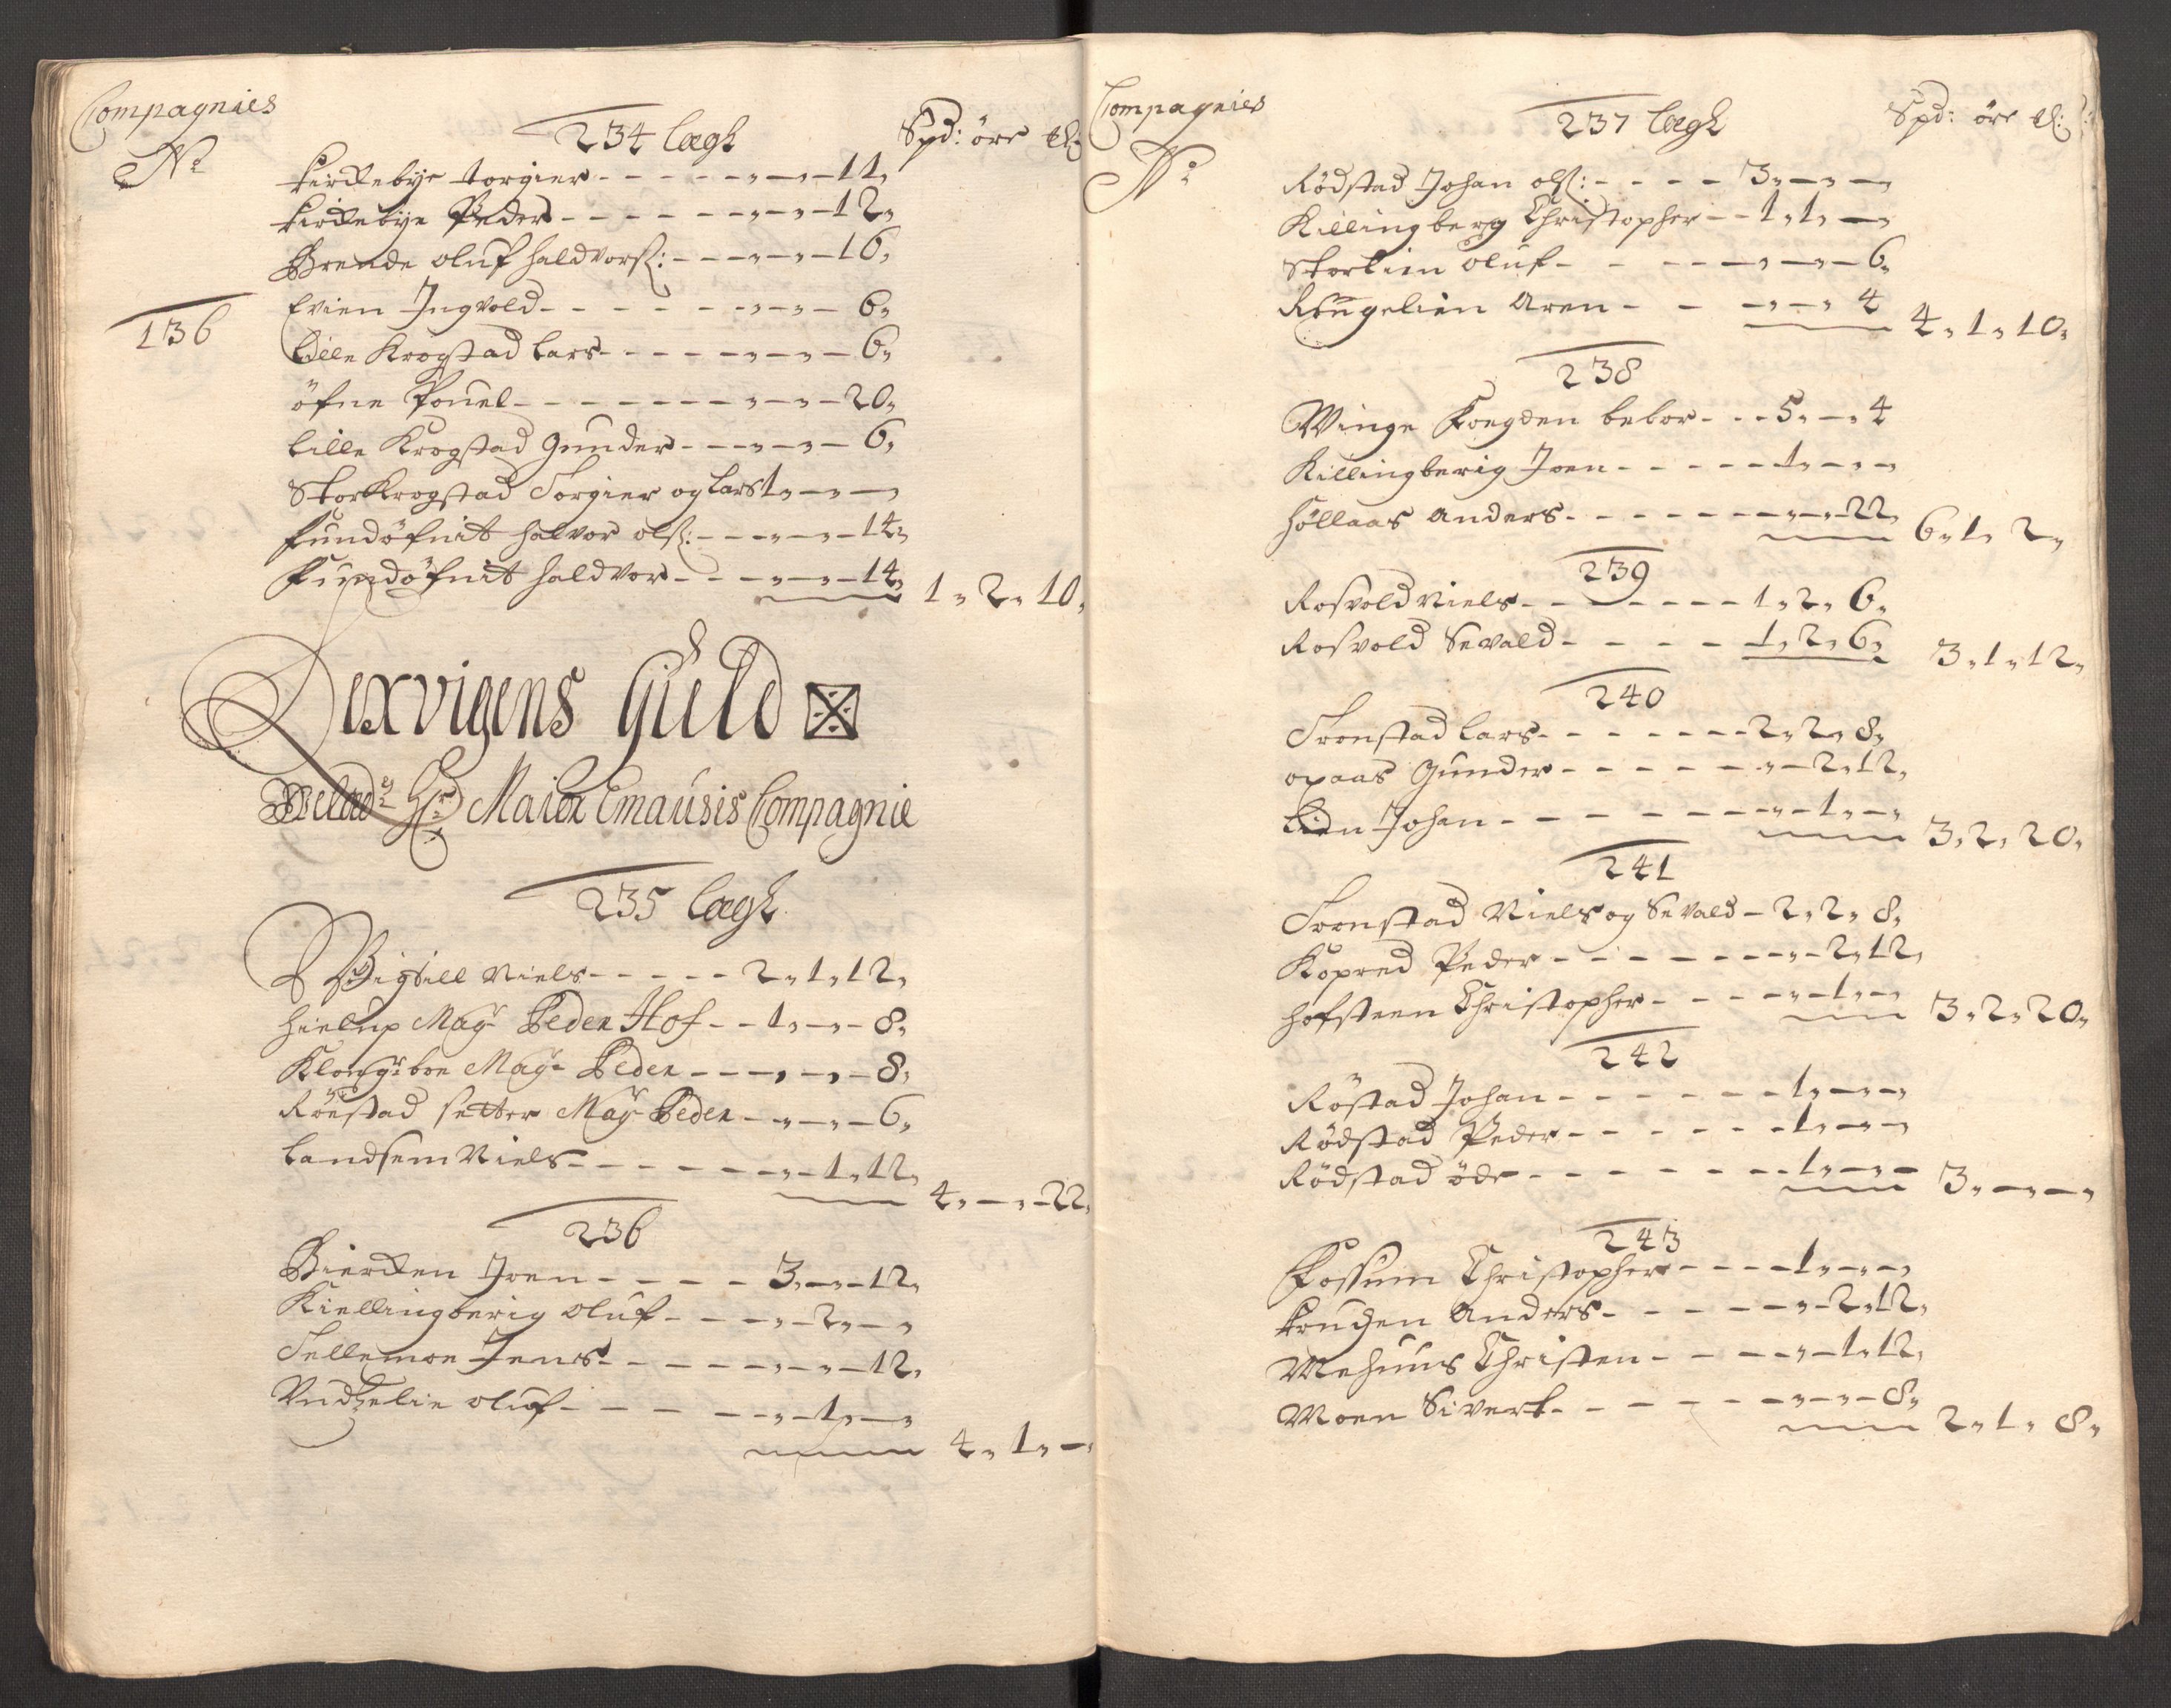 Compagnies
No
234 lægh
Spd: öre
Kirckebye torgier - - - - - „ - „ - 11„
Kirckebye Peder - - - - - - „ - „ - 12„
Brende oluf haldvors: - - - „ - „ - 16„
136
Evien Ingvold - - - - - - „ - „ - 6„
Lille Krogstad Lars - - - - „ - „ - 6„
öfne Pouel - - - - - - - „ - „ - 20„
Lille Krogstad Gunder - - - „ - „ - 6„
StorKrogstad Torgier og Lars 1„ - „ -
Fundöfnit halvor ols: - - - „ - „ - 14„
Fundöfnit haldvor - - - „ - „ - 14„
1„ 2„ 10„
Dexvigens Guld
Maior Emausis Compagnie
235 lægh
Bigtill Niels - - - - - 2„ 1„ 12„
hielup Magr Peder Hof - - 1„ - „ - 8„
bon Magr Peder - - - „ - „ - 8„
Röestad setter Magr Peder - „ - „ - 6„
Landsem Niels - - - - - „ - 1„ 12„
4„ - „ - 22„
236
Biercken Joen - - - - 3„ - „ - 12„
Kiellingberig oluf - - - „ - 2„ - „
Tellemoe Jens - - - - - „ - „ - 12„
oluf - - - - „ - 1„ - „
4„ 1„ -
Compagnies
No
237 lægh
Spd: öre
Rödstad Johan ols: - - - - 3„ - „ -
Killingberg Christopher - - 1„ 1„ -
Storlien oluf - - - - „ - „ - 6„
Rungelien Aren - - - „ - „ 4
4„ 1„ 10„
238
Winge Fougden bebor - - - 5„ - „ 4
Killingberig Joen - - - - - 1„ - „ -
höllaas Anders - - - - - - „ - „ - 22„
6„ 1„ 2„
239
Rosvold Niels - - - - - - - 1„ 2„ 6„
Rosvold Sevald - - - - - 1„ 2„ 6„
3„ 1„ 12„
240
Tronstad Lars - - - - - - - 2„ 2„ 8„
opaas Gunder - - - - - - „ - 2„ 12„
Lien Johan - - - - - - - „ - 1„ - „
3„ 2„ 20„
241
Tronstad Niels og Sevald - 2„ 2„ 8„
Kopred Peder - - - - - - - „ - 2„ 12„
hofsteen Christopher - - - - „ - 1„ - „
3„ 2„ 20„
242
Röstad Johan - - - - - - - 1„ - „ -
Rödstad Peder - - - - - - 1„ - „ -
Rödstad öde - - - - - - - 1„ - „ -
3„ - „ - „
243
Fossum Christopher - - - - 1„ - „ -
Anders - - - - - - „ - 2„ 12„
Mehuus Christen - - - - „ - 1„ 12„
Moen Sivert - - - - - - „ - „ - 8„
2„ 1„ 8„